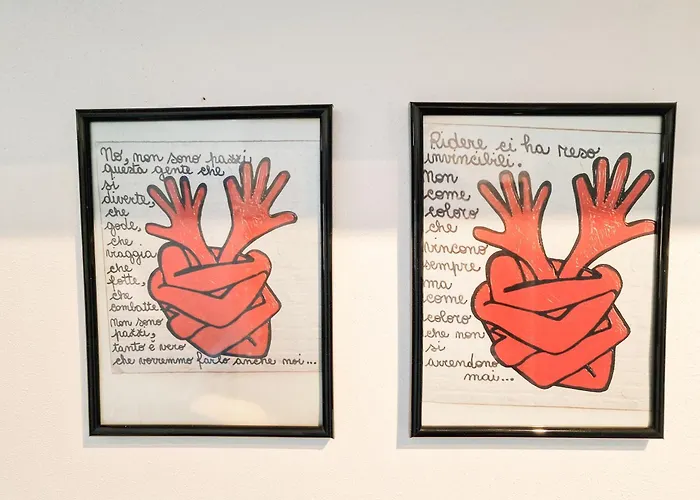 No, non sono pazzi
questa gente che
si
diverte,
che
gode,
che
viaggia
che
fotte,
che
combatte.
Non sono
pazzi,
tanto è vero
che vorremmo farlo anche noi...
Ridere ci ha reso
invincibili.
Non
come
coloro
che
vincono
sempre
ma
come
coloro
che non
si
arrendono
mai...